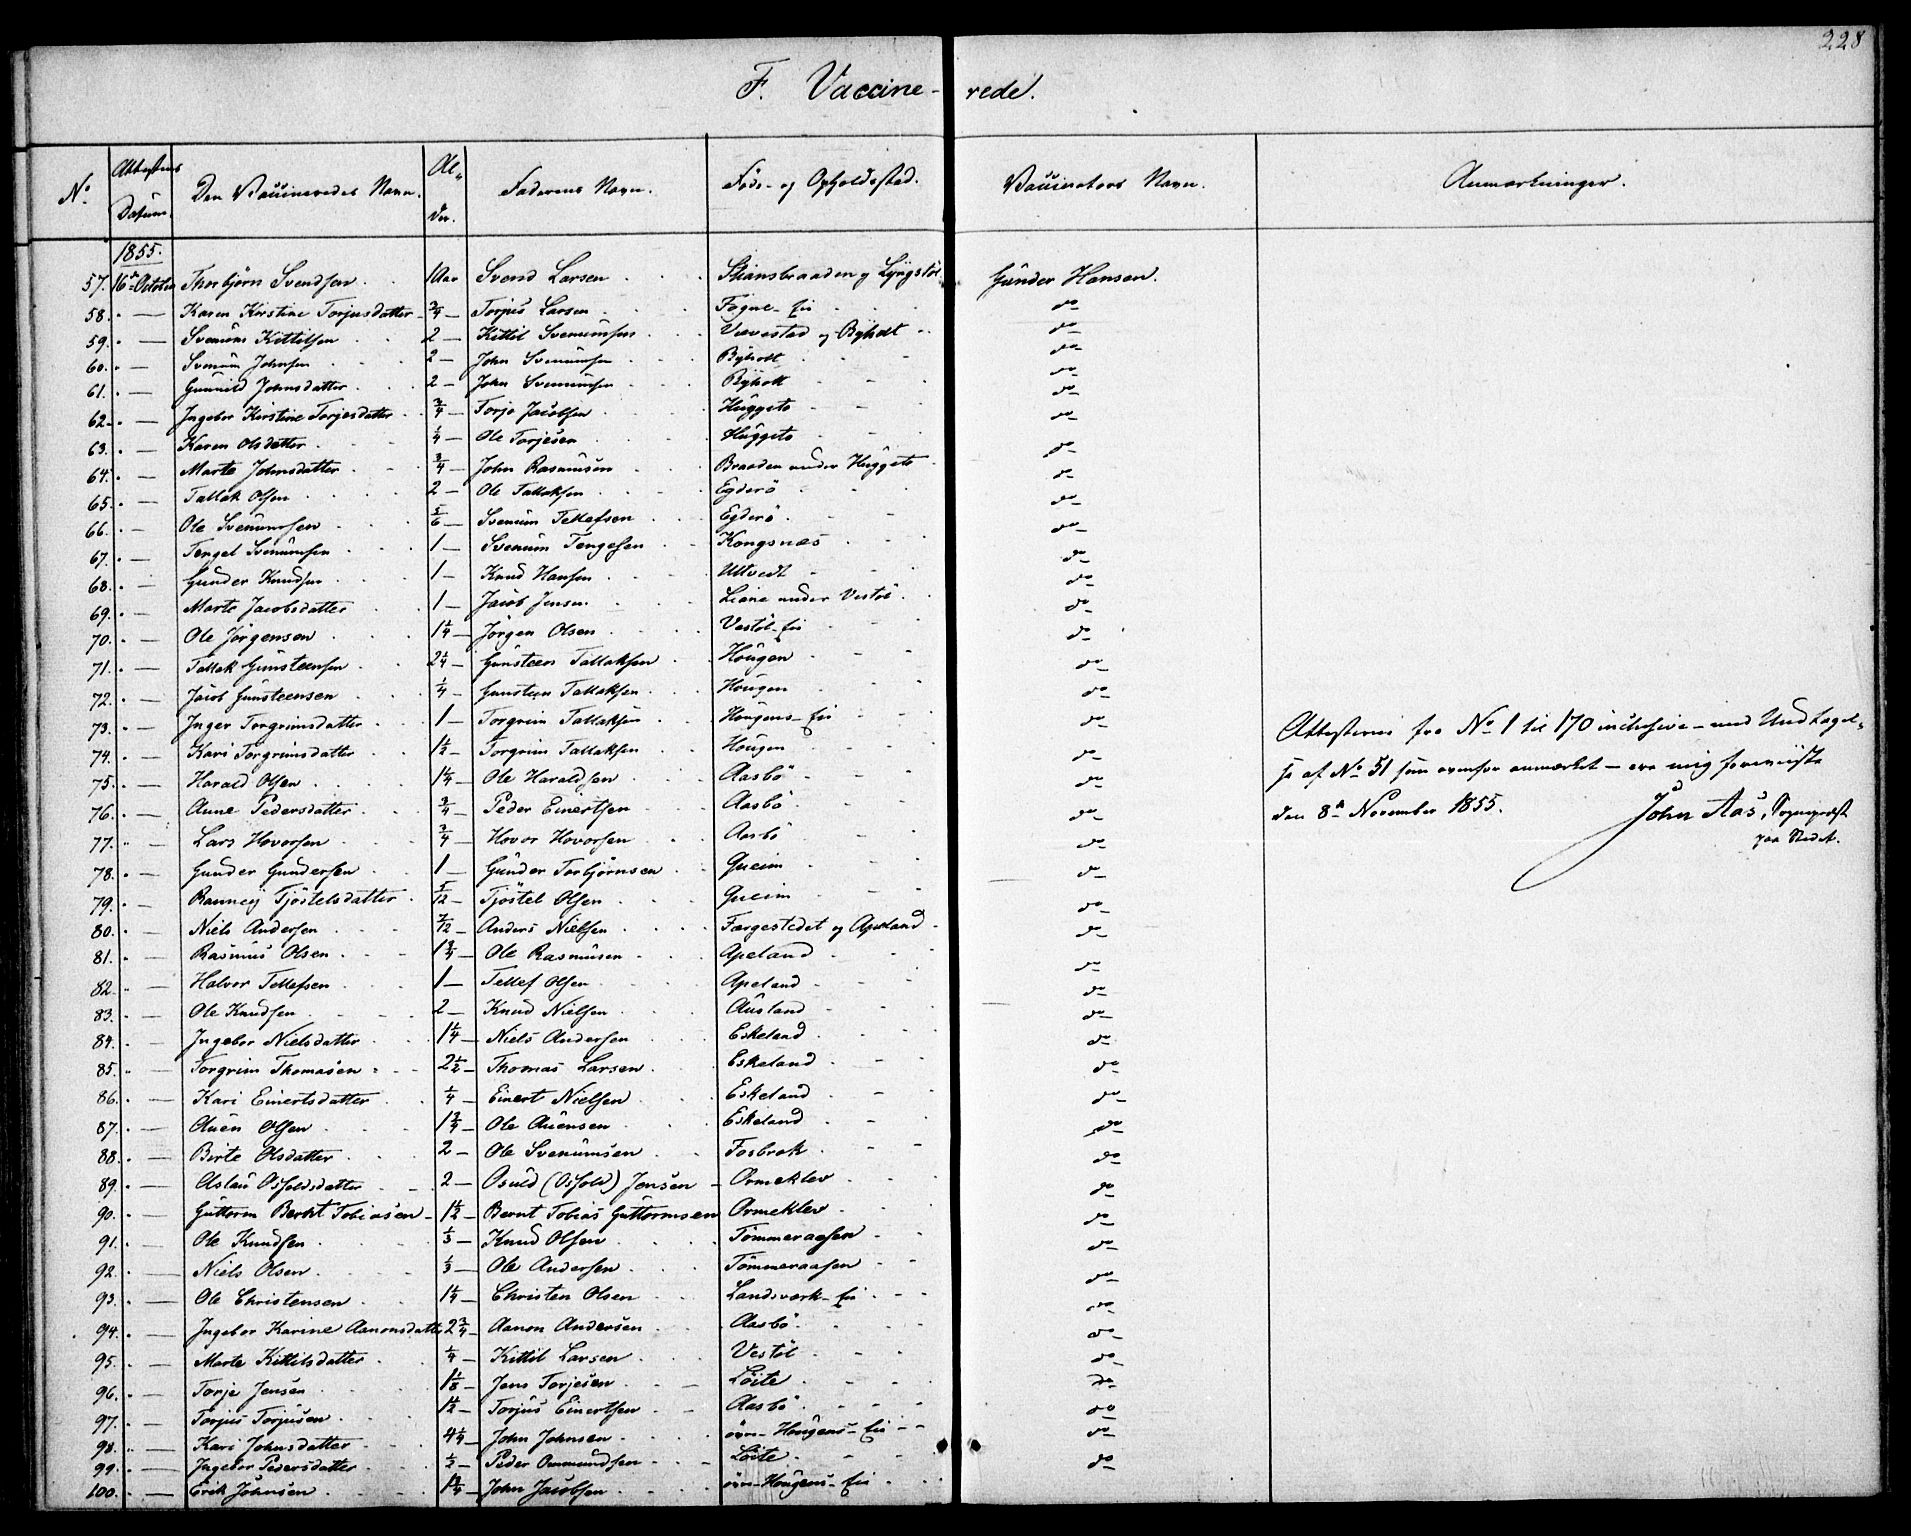 228
F. Vaccine-rede.
No. Attestens Datum. Den Vaccineredes Navn. Al-der. Faderens Navn. Føde- og Opholdssted. Vaccinators Navn. Anmærkninger.
1855.
57. 16de October Thorbjörn Svendsen 1 Aar Svend Larsen Skiansbraaden og Lyngstöl Gunder Hansen.
58. " — Karen Kirstine Torjusdatter 3/4 — Torjus Larsen Fogne-Eie do
59. " — Svenum Kittilsen 2 — Kittil Svenumsen Vævestad og Byholt do
60. " — Svenum Johnsen 2 — John Svenumsen Byholt do
61. " — Gunnild Johnsdatter 2 — John Svenumsen Byholt do
62. " — Ingebor Kirstine Torjesdatter 3/4 — Torje Jacobsen Huggeto do
63. " — Karen Olsdatter 1/4 — Ole Torjesen Huggeto do
64. " — Marte Johnsdatter 3/4 — John Rasmusen Braaden under Huggeto do
65. " — Tallak Olsen 2 — Ole Tallaksen Egderö do
66. " — Ole Svenumsen 5/6 — Svenum Tellefsen Egderö do
67. " — Tengel Svenumsen 1 — Svenum Tengelsen Kongsnæs do
68. " — Gunder Knudsen 1 — Knud Hansen Ulltvedt do
69. " — Marte Jacobsdatter 1 — Jacob Jensen Liane under Vestöl do
70. " — Ole Jörgensen 1 1/4 — Jörgen Olsen Vestöl-Eie do
71. " — Tallak Gunsteensen 2 1/4 — Gunsteen Tallaksen Hougen do
72. " — Jacob Gunsteensen 1/4 — Gunsteen Tallaksen Hougen do
73. " — Inger Torgrimsdatter 1 — Torgrim Tallaksen Hougens-Eie do
74. " — Kari Torgrimsdatter 1 1/2 — Torgrim Tallaksen Hougen do
75. " — Harald Olsen 1 1/4 — Ole Haraldsen Aasbö do
76. " — Anne Pedersdatter 3/4 — Peder Einertsen Aasbö do
77. " — Lars Hovorsen 3/4 — Hovor Hovorsen Aasbö do
78. " — Gunder Gundersen 1 — Gunder Torbjörnsen Gueim do
79. " — Rannei Tjöstelsdatter 5/12 — Tjöstel Olsen Gueim do
80. " — Niels Andersen 7/12 — Anders Nielsen Færgestedet og Apeland do
81. " — Rasmus Olsen 1 3/4 — Ole Rasmusen Apeland do
82. " — Halvor Tellefsen 1 — Tellef Olsen Apeland do
83. " — Ole Knudsen 2 — Knud Nielsen Ausland do
84. " — Ingebor Nielsdatter 1 1/4 — Niels Andersen Eskeland do
85. " — Torgrim Thomasen 2 1/2 — Thomas Larsen Eskeland do
86. " — Kari Einertsdatter 1/4 — Einert Nielsen Eskeland do
87. " — Auen Olsen 1 3/4 — Ole Auensen Eskeland do
88. " — Birte Olsdatter 2 — Ole Svenumsen Fosbrok do
89. " — Aslau Osfoldsdatter 2 — Osuld (Osfold) Jensen Ormeklev do
90. " — Guttorm Berent Tobiasen 1 1/2 — Bernt Tobias Guttormsen Ormeklev do
91. " — Ole Knudsen 1/3 — Knud Olsen Tömmeraasen do
92. " — Niels Olsen 1/3 — Ole Andersen Tömmeraasen do
93. " — Ole Christensen 1 1/4 — Christen Olsen Landsværk-Eie do
94. " — Ingebor Karine Aanonsdatter 2 3/4 — Aanon Andersen Aasbö do
95. " — Marte Kittilsdatter 1/4 — Kittil Larsen Vestöl do
96. " — Torje Jensen 1 1/8 — Jens Torjesen Löite do
97. " — Torjus Torjusen 1 1/2 — Torjus Einertsen Aasbö do
98. " — Kari Johnsdatter 4 1/4 — John Johnsen övre-Hougens-Eie do
99. " — Ingebor Pedersdatter 1/2 — Peder Ommundsen Löite do
100. " — Erik Johnsen 1 3/4 — John Jacobsen övre-Hougens-Eie
Attesterne fra No 1 til 170 inclusive – med Undtagel-
se af No 51 som ovenfor anmærket – ere mig foreviiste
den 8de November 1855. John Aas, Sognepræst
paa Stedet.